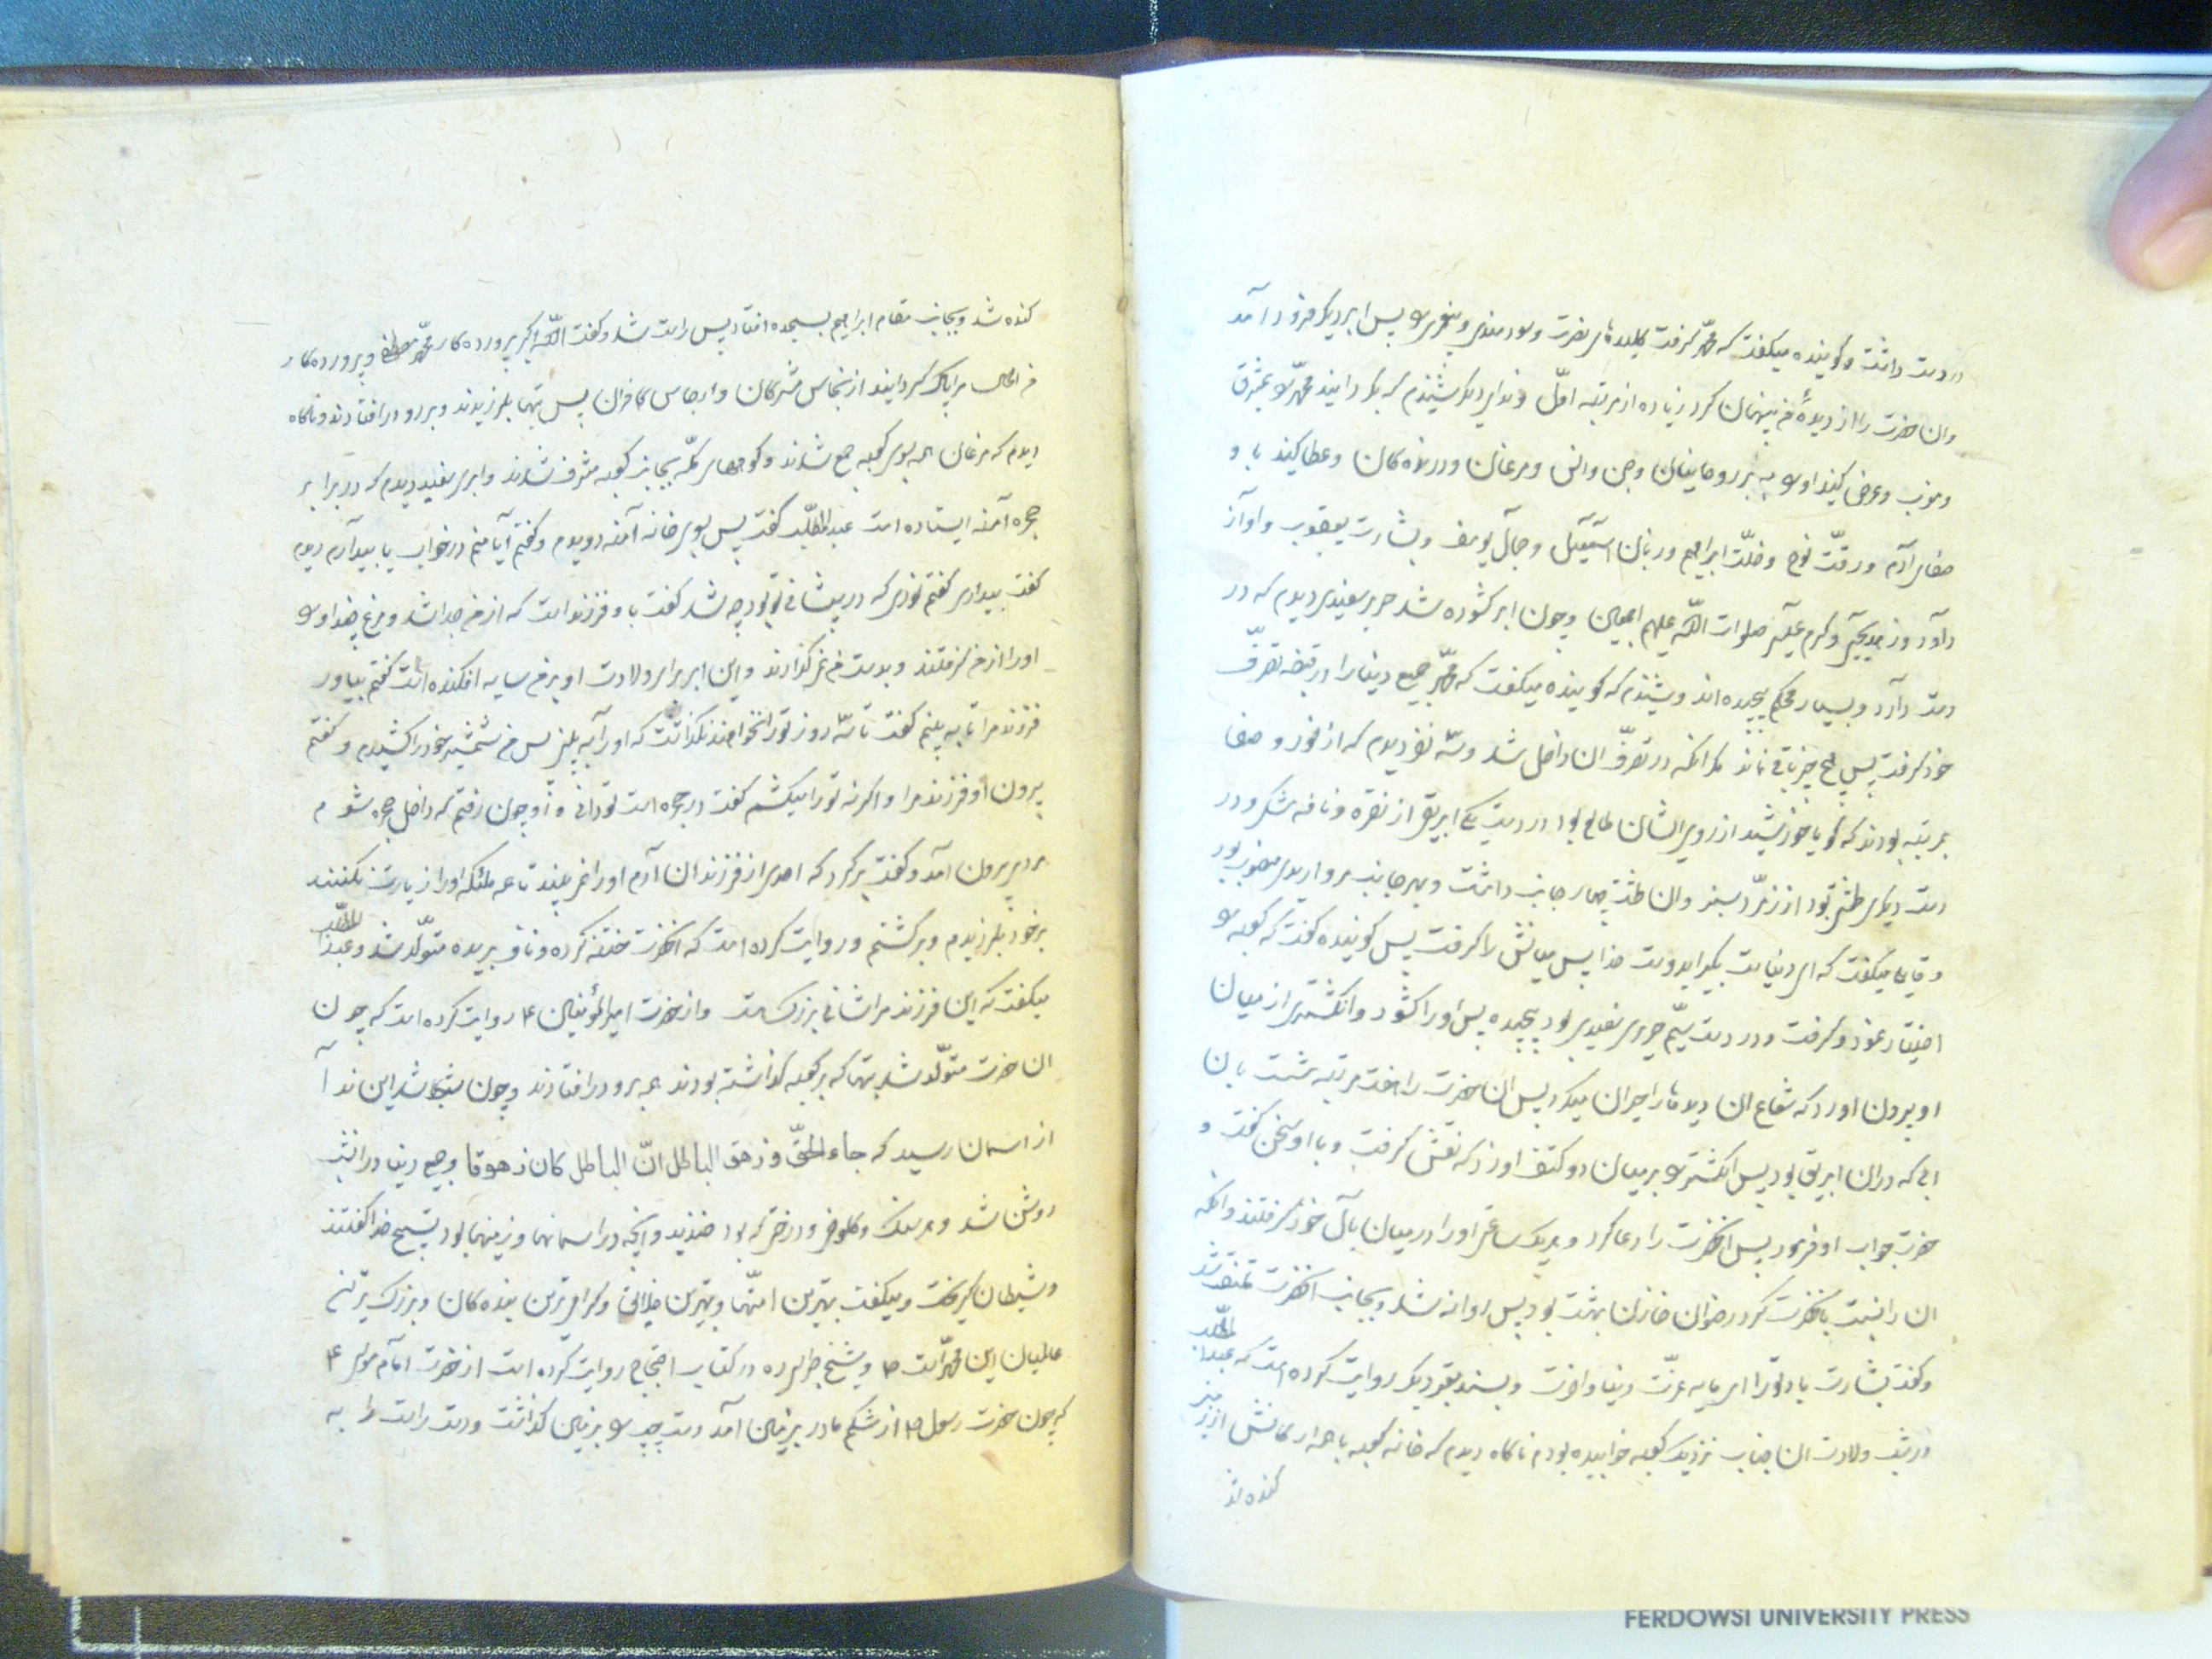 در دست داشت و گوینده میگفت که محمّد گرفت کلیدهای نصرت و سودمندی و پیغمبری پس ابر دیگر فرود آمد
وان حضرت را از دیدهٔ من پنهان کرد زیاده از مرتبه اوّل و ندای دیگر شنیدم که بگردانید محمّد را بمشرق
ومغرب وعرض کنید او را به روحانیان وجن وانس ومرغان ودرندهکان وعطا کنید باو
صفای آدم ورقّت نوح وخلّت ابراهیم وزبان اسمعیل وجمال یوسف وبشارت یعقوب واواز
داود وزهد یحیی وکرم عیسی صلوات اللّه علیهم اجمعین وچون ابر کشوده شد حریر سفیدی دیدم که در
دست دارد وبسیار محکم پیچیدهاند وشنیدم که گوینده میگفت که محمّد جمیع دنیا را در قبضه تصرّف
خود گرفت پس هیچ چیز باقی نماند مگر انکه در تصرّف ان داخل شد وسه نفر دیدم که از نور وصفا
بمرتبه بودند که گویا خورشید از روی ایشان طالع بود در دست یکی ابریقی از نقره ونافه مشک ودر
دست دیگری طشتی بود از زمرّد سبز وان طشت چهار جانب داشت وبهر جانب مرواریدی منصوب بود
وقایلی میگفت که این دنیاست بگیر ای دوست خدا پس میانش را گرفت پس گوینده گفت که کعبه را
اختیار نمود وگرفت ودر دست سیّم حریری سفیدی بود پیچیده پس اورا کشود وانگشتری از میان
او بیرون اورد که شعاع ان دیدها را حیران میکرد پس ان حضرت را هفت مرتبه شست بان
ابی که در ان ابریق بود پس انگشتر را بر میان دو کتف او زد که نقش گرفت وبا او سخن گفت و
حضرت جواب او فرمود پس انحضرت را دعا کرد وهر یک ساعتی اورا در میان بال خود گرفتند وانکه
ان را نسبت بانحضرت کرد رضوان خازن بهشت بود پس روانه شد وبجانب انحضرت ملتفت شد
وگفت بشارت باد تورا ای مایه عزّت دنیا واخرت وبسند معتبر دیگر روایت کرده است که عبدالمطّلب
در شب ولادت ان جناب نزدیک کعبه خوابیده بودم ناگاه دیدم که خانه کعبه با همه ارکانش از زمین
کنده شد
کنده شد وبجانب مقام ابراهیم بسجده افتاد پس راست شد وگفت اللّه اکبر پروردهکار محمّد مصطفی وپروردهکار
من الحال مرا پاک گردانید از انجاس مشرکان وارجاس کافران پس بتها بلرزیدند وبر رو در افتادند وناگاه
دیدم که مرغان همه بسوی کعبه جمع شدند وکوههای مکّه بجانب کعبه مشرف شدند وابری سفید دیدم که در برابر
حجره آمنه ایستاده است عبدالمطّلب گفت پس بسوی خانه آمنه دویدم وگفتم آیا منم در خواب یا بیدارم دیدم
گفت بیداری گفتم نوری که در پیشانی تو بود چه شد گفت با فرزندیست که از من جدا شد ومرغی چند او را
اورا از من گرفتند وبدست من نمیگذارند واین ابر برای ولادت او بر من سایه افکنده است گفتم بیاور
فرزند مرا تا به بینم گفت تا سه روز تورا نخواهند گذاشت که اورا به بینی پس من شمشیر خود را کشیدم وگفتم
بیرون اور فرزند مرا واگر نه تورا میکشم گفت در حجره است تو دانی و او چون رفتم که داخل حجره شوم
مردی بیرون آمد وگفت برگرد که احدی از فرزندان آدم اورا نمیبیند تا همه ملئکه اورا زیارت نکنند
برخود بلرزیدم وبرگشتم وروایت کرده است که انحضرت ختنه کرده وناف بریده متولّد شد وعبدالمطّلب
میگفت که این فرزند مرا شانی بزرگ است واز حضرت امیرالمؤمنین ع روایت کرده است که چون
ان حضرت متولّد شد بتها که بر کعبه گذاشته بودند همه برو در افتادند وچون شام شد این ندا
از اسمان رسید که جاء الحقّ وزهق الباطل انّ الباطل کان زهوقا وجمیع دنیا در انشب
روشن شد وهر سنگ وکلوخی ودرختی که بود خندید وانچه در اسمانها وزمینها بود تسبیح خدا گفتند
وشیطان گریخت ومیگفت بهترین امّتها وبهترین خلایق وگرامیترین بندهکان وبزرگترین
عالمیان این محمّد است ص وشیخ طبرسی ره در کتاب احتجاج روایت کرده است از حضرت امام موسی ع
که چون حضرت رسول ص از شکم مادر بزمین آمد دست چپ را بزمین گذاشت ودست راست را به
FERDOWSI UNIVERSITY PRESS